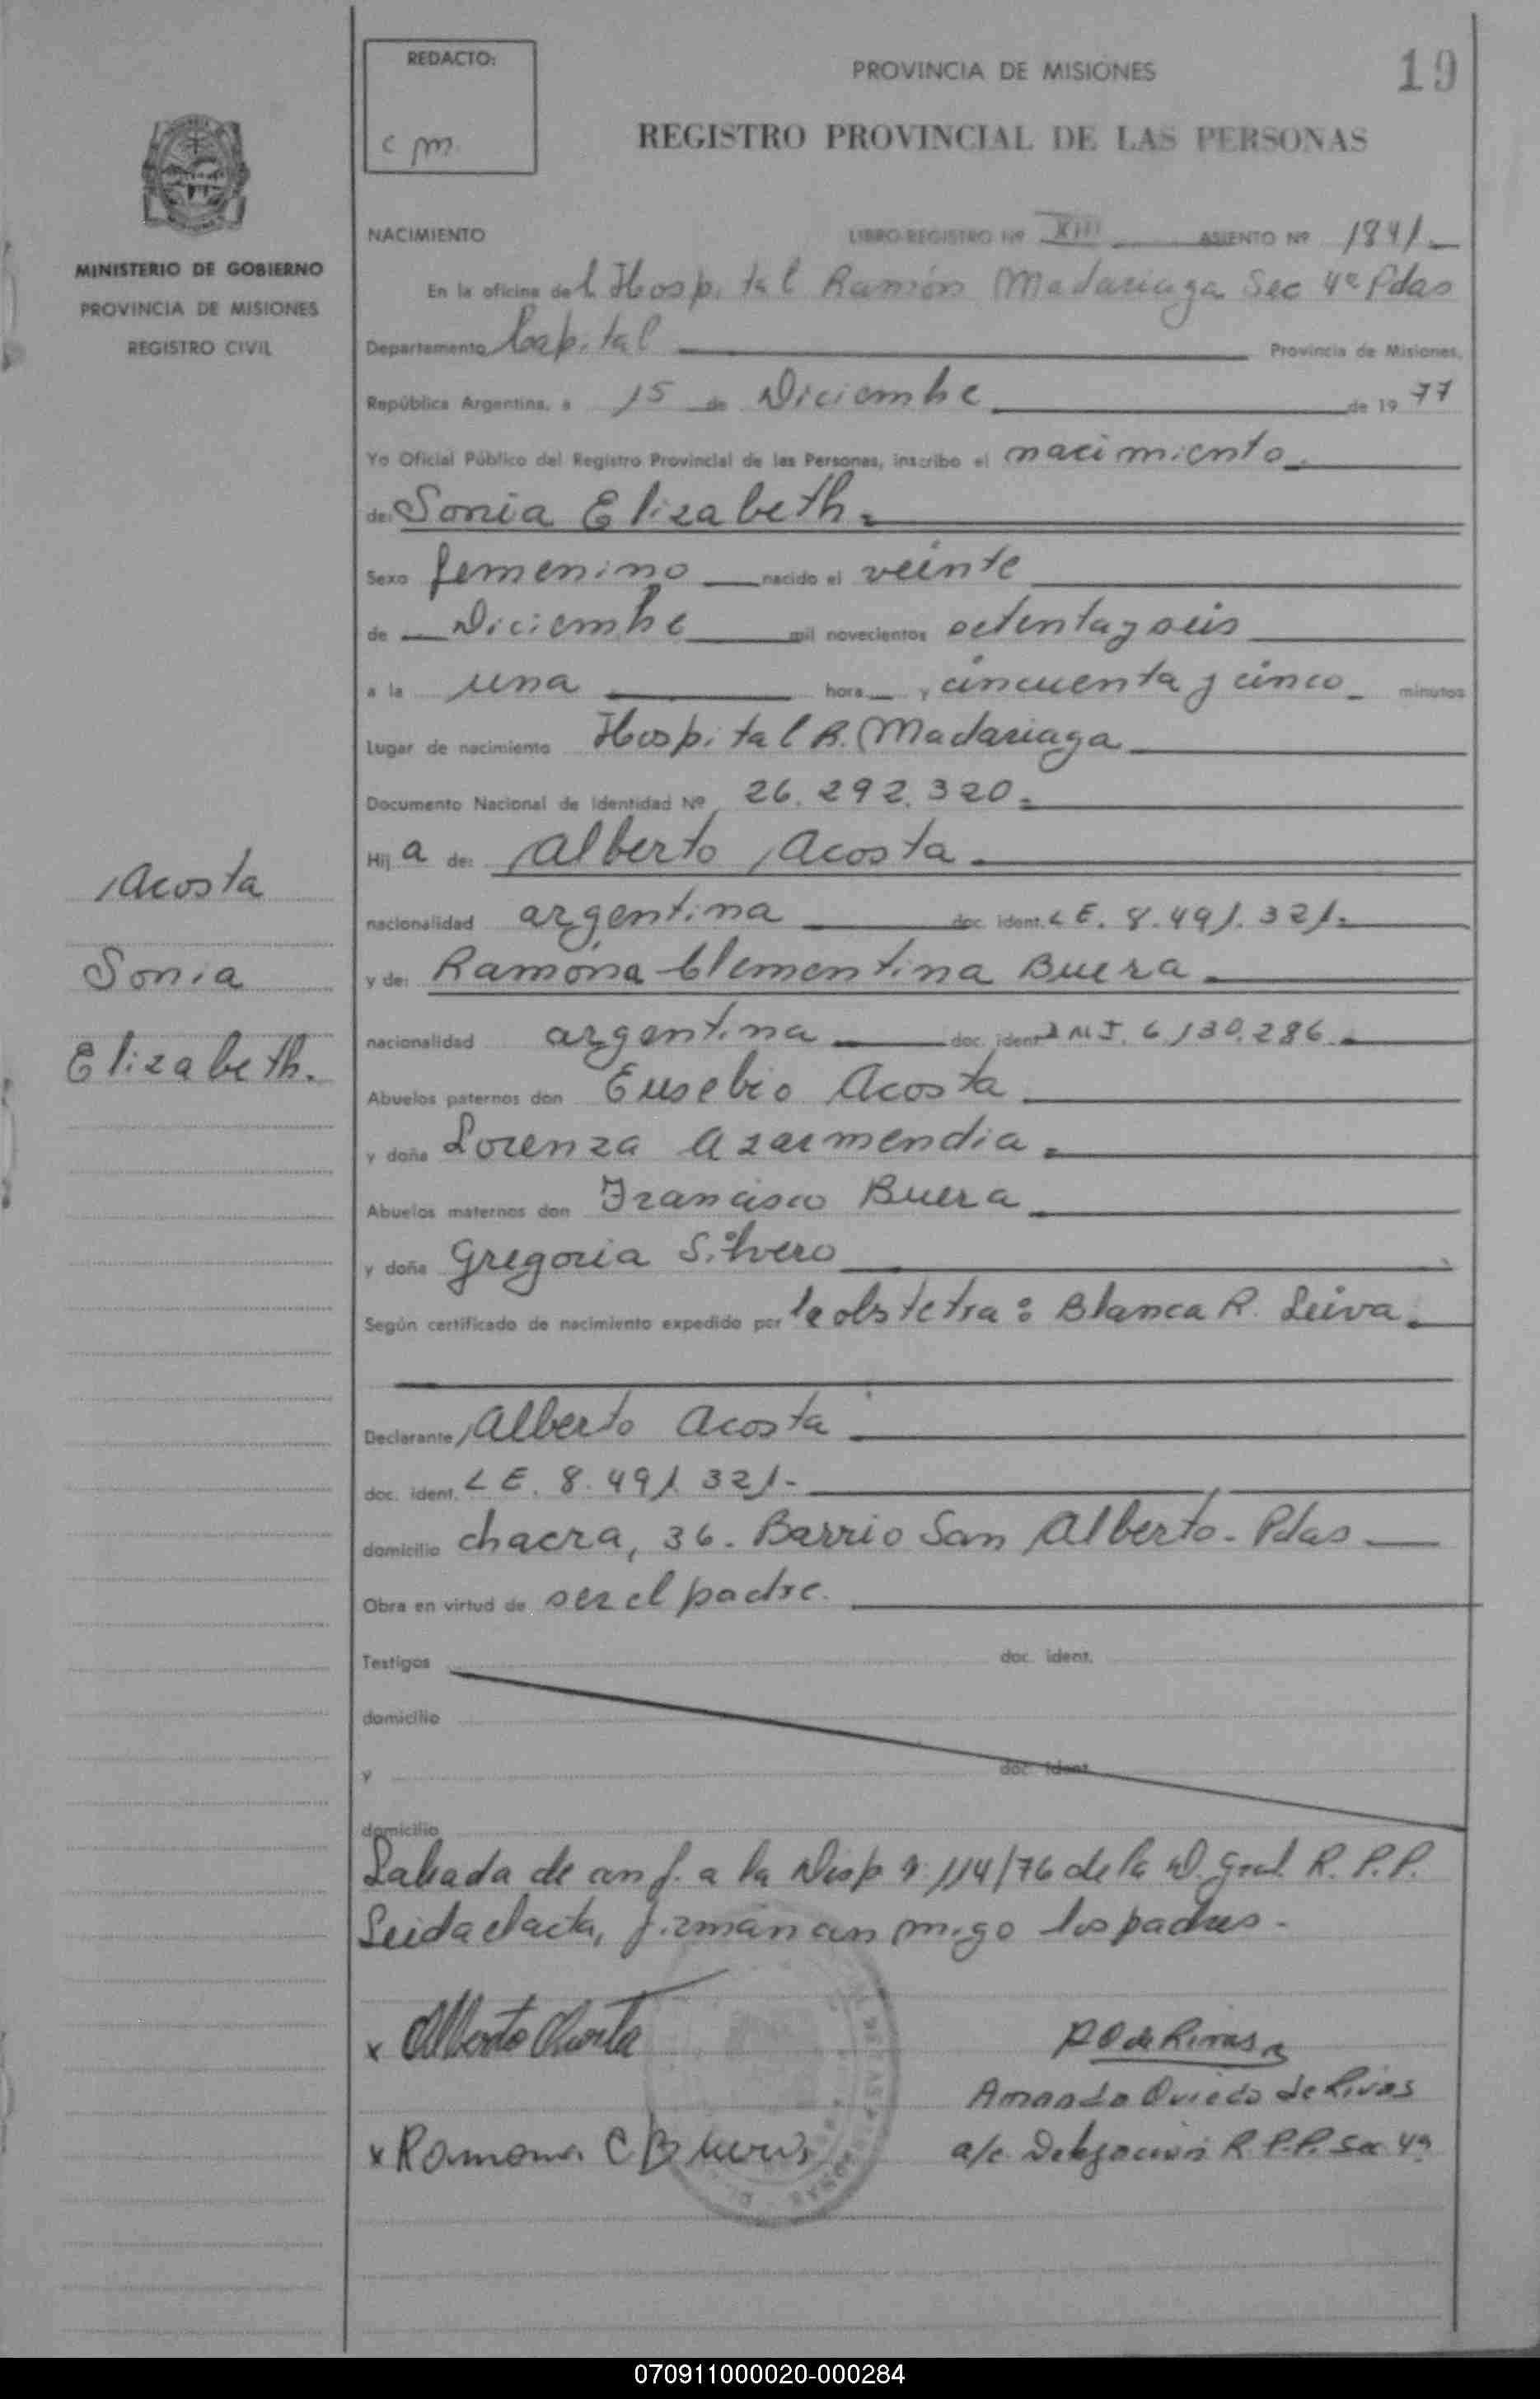 REDACTO:
c m.
PROVINCIA DE MISIONES
19
REGISTRO PROVINCIAL DE LAS PERSONAS
MINISTERIO DE GOBIERNO
PROVINCIA DE MISIONES
REGISTRO CIVIL
NACIMIENTO LIBRO-REGISTRO Nº XIII ASIENTO Nº 1841
En la oficina del Hospital Ramón Madariaga Sec 4ª Pdas
Departamento Capital Provincia de Misiones,
República Argentina, a 15 de Diciembre de 1977
Yo Oficial Público del Registro Provincial de las Personas, inscribo el nacimiento.
de: Sonia Elizabeth.
Sexo femenino nacido el veinte
de Diciembre mil novecientos setenta y seis
a la una hora y cincuenta y cinco minutos
Lugar de nacimiento Hospital R. Madariaga
Documento Nacional de Identidad Nº 26.292.320
Hija de: Alberto Acosta
nacionalidad argentina doc. ident. L E. 8.491.321.
y de: Ramona Clementina Buera
nacionalidad argentina doc. ident. D N I. 6.130.286
Abuelos paternos don Eusebio Acosta
y doña Lorenza Azarmendia
Abuelos maternos don Francisco Buera
y doña Gregoria Silvero
Según certificado de nacimiento expedido por la obstetra: Blanca R. Leiva
Declarante Alberto Acosta
doc. ident. L E. 8.491.321-
domicilio chacra, 36. Barrio San Alberto - Pdas
Obra en virtud de ser el padre.
Testigos doc. ident.
domicilio
y doc. ident.
domicilio
Labada de conf. a la Disp. n. 114/76 de la D. Gral. R. P. P.
Leida el acta, firman con migo los padres.
x Alberto Acosta
x Ramona C B
A O de Rivas
Amanda Oviedo de Rivas
a/c. Delegación R.P.P. Sec. 4ª
Acosta
Sonia
Elizabeth.
070911000020-000284